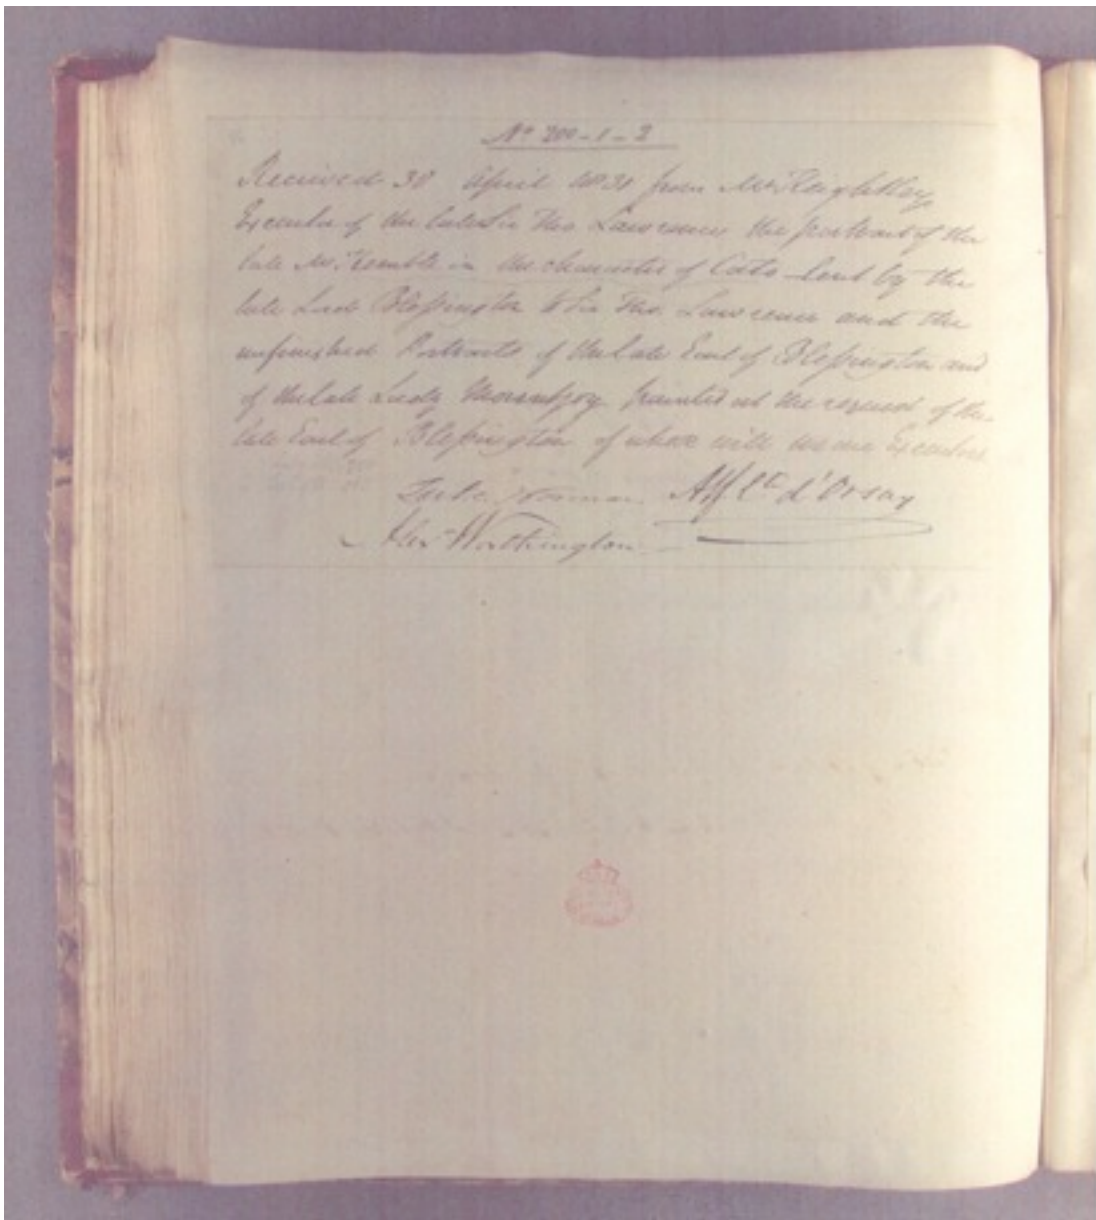 No 200-1-2
Received 30 April 1831 from Mr Keightley
Executor of the late Sir Thos Lawrence the portrait of the
late Mr Kemble in the character of Cato lent by the
late Lord Blessington to Sir Thos. Lawrence and the
unfinished Portraits of the late Earl of Blessington and
of the late Lady Mountjoy painted at the request of the
late Earl of Blessington of whose will we are Executors
Luke Norman Alf Cte d'Orsay
Alex Worthington